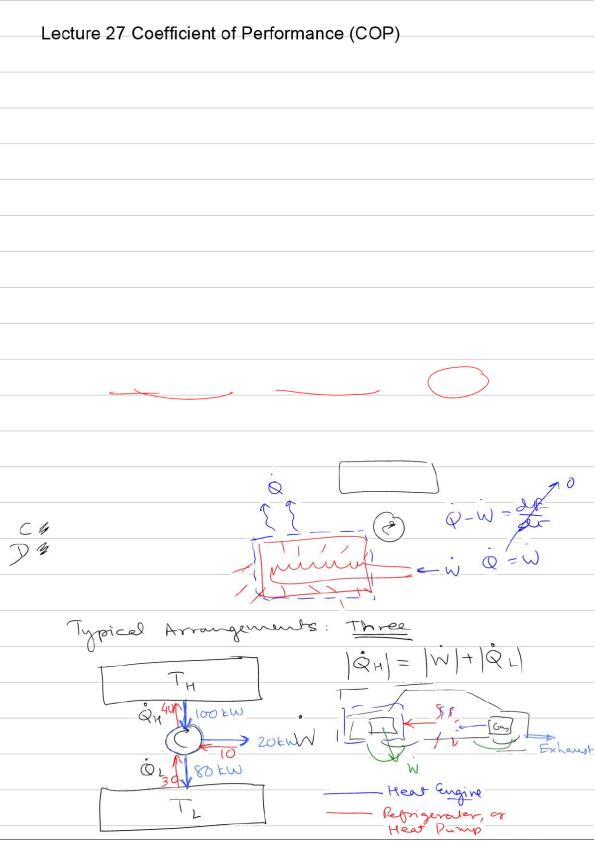 Lecture 27 Coefficient of Performance (COP)
Q̇
Q̇-Ẇ = dE/dt 0
C
D
2
Ẇ
Q̇ = Ẇ
Typical Arrangements: Three
|Q̇H| = |Ẇ|+|Q̇L|
TH
Q̇H 40 100 kW
C
20kW Ẇ
10
Q̇L 30 80 kW
TL
Gas
Ẇ
Exhaust
Heat Engine
Refrigerator, or
Heat Pump